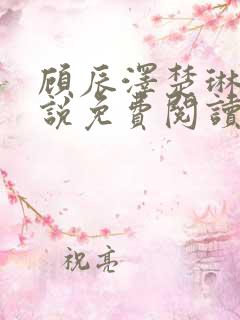 顾辰泽楚琳
說免費閱讀
祝亮